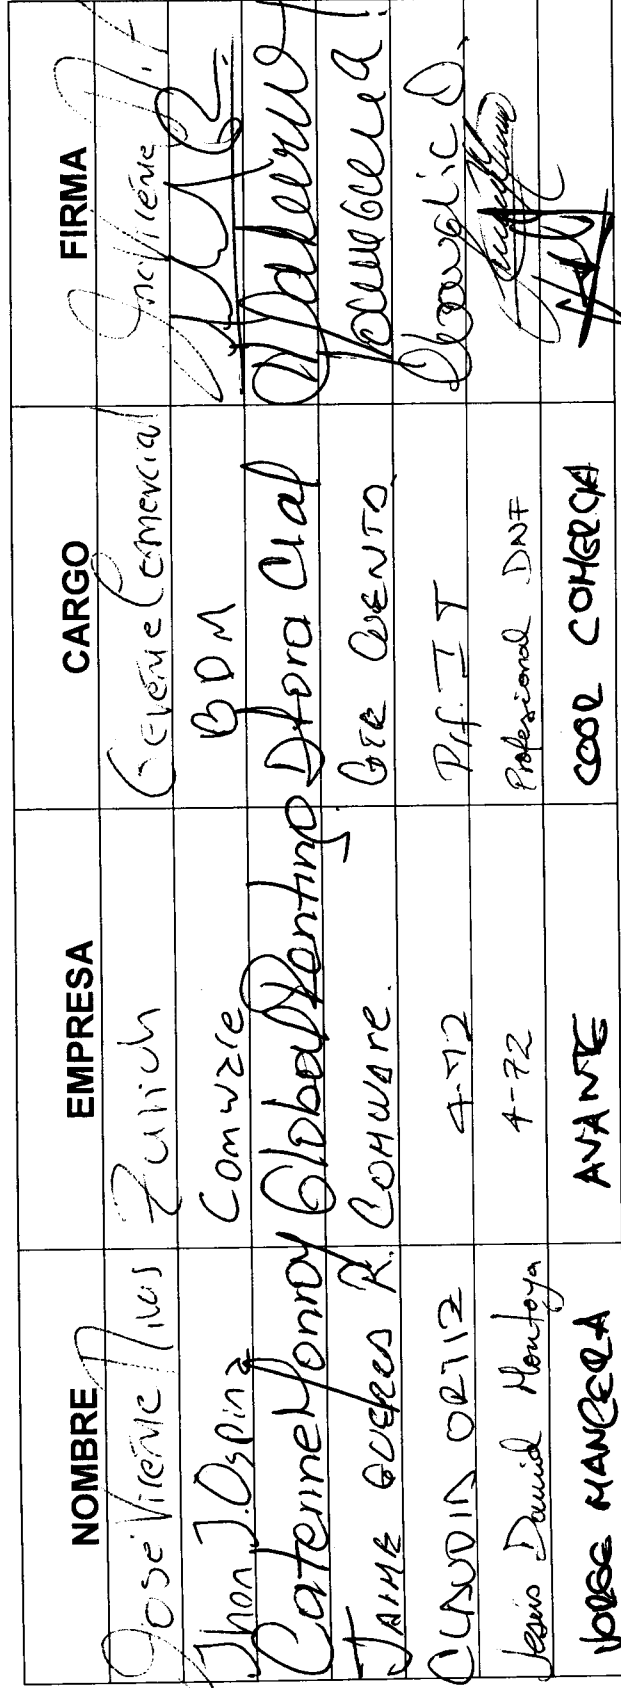 NOMBRE EMPRESA CARGO FIRMA
José Vicente Rivas Zurich Gerente Comercial
Jhon J. Ospina Comware BDM
Caterine Monroy Global Renting Dtora Cial
JAIME R. COMWARE. GTE CUENTA
CLAUDIA ORTIZ 4-72 Prf. IT
Jesús David Montoya 4-72 Profesional DNF
JORGE MANCERA AVANTE COOR COMERCIAL